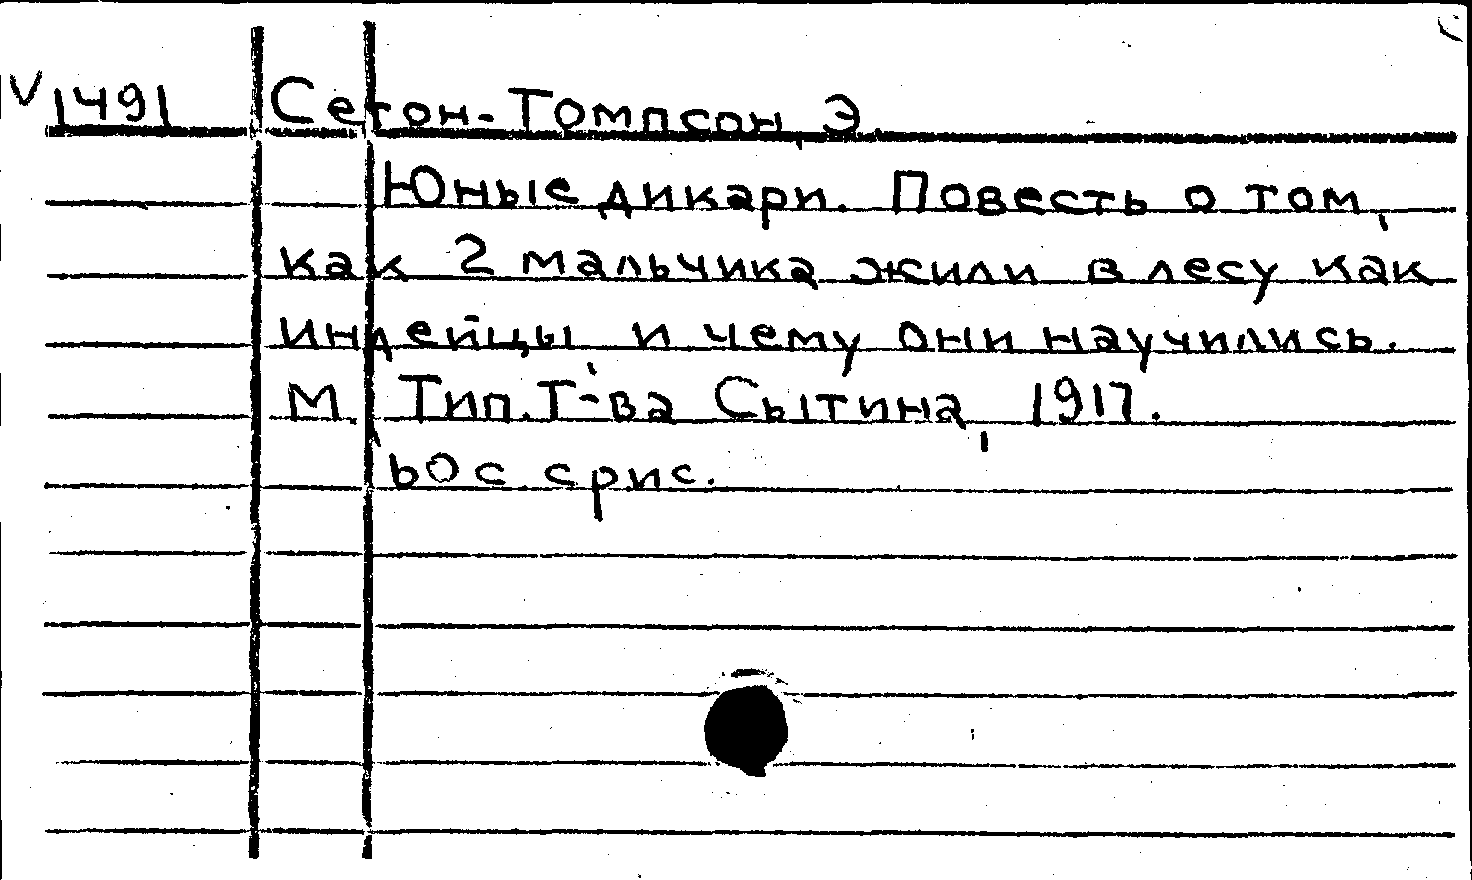 V1491 Сетон-Томпсон, Э
Юные дикари. Повесть о том,
как 2 мальчика жили в лесу как
индейцы и чему они научились.
М, Тип. Т-ва Сытина, 1917.
с рис.